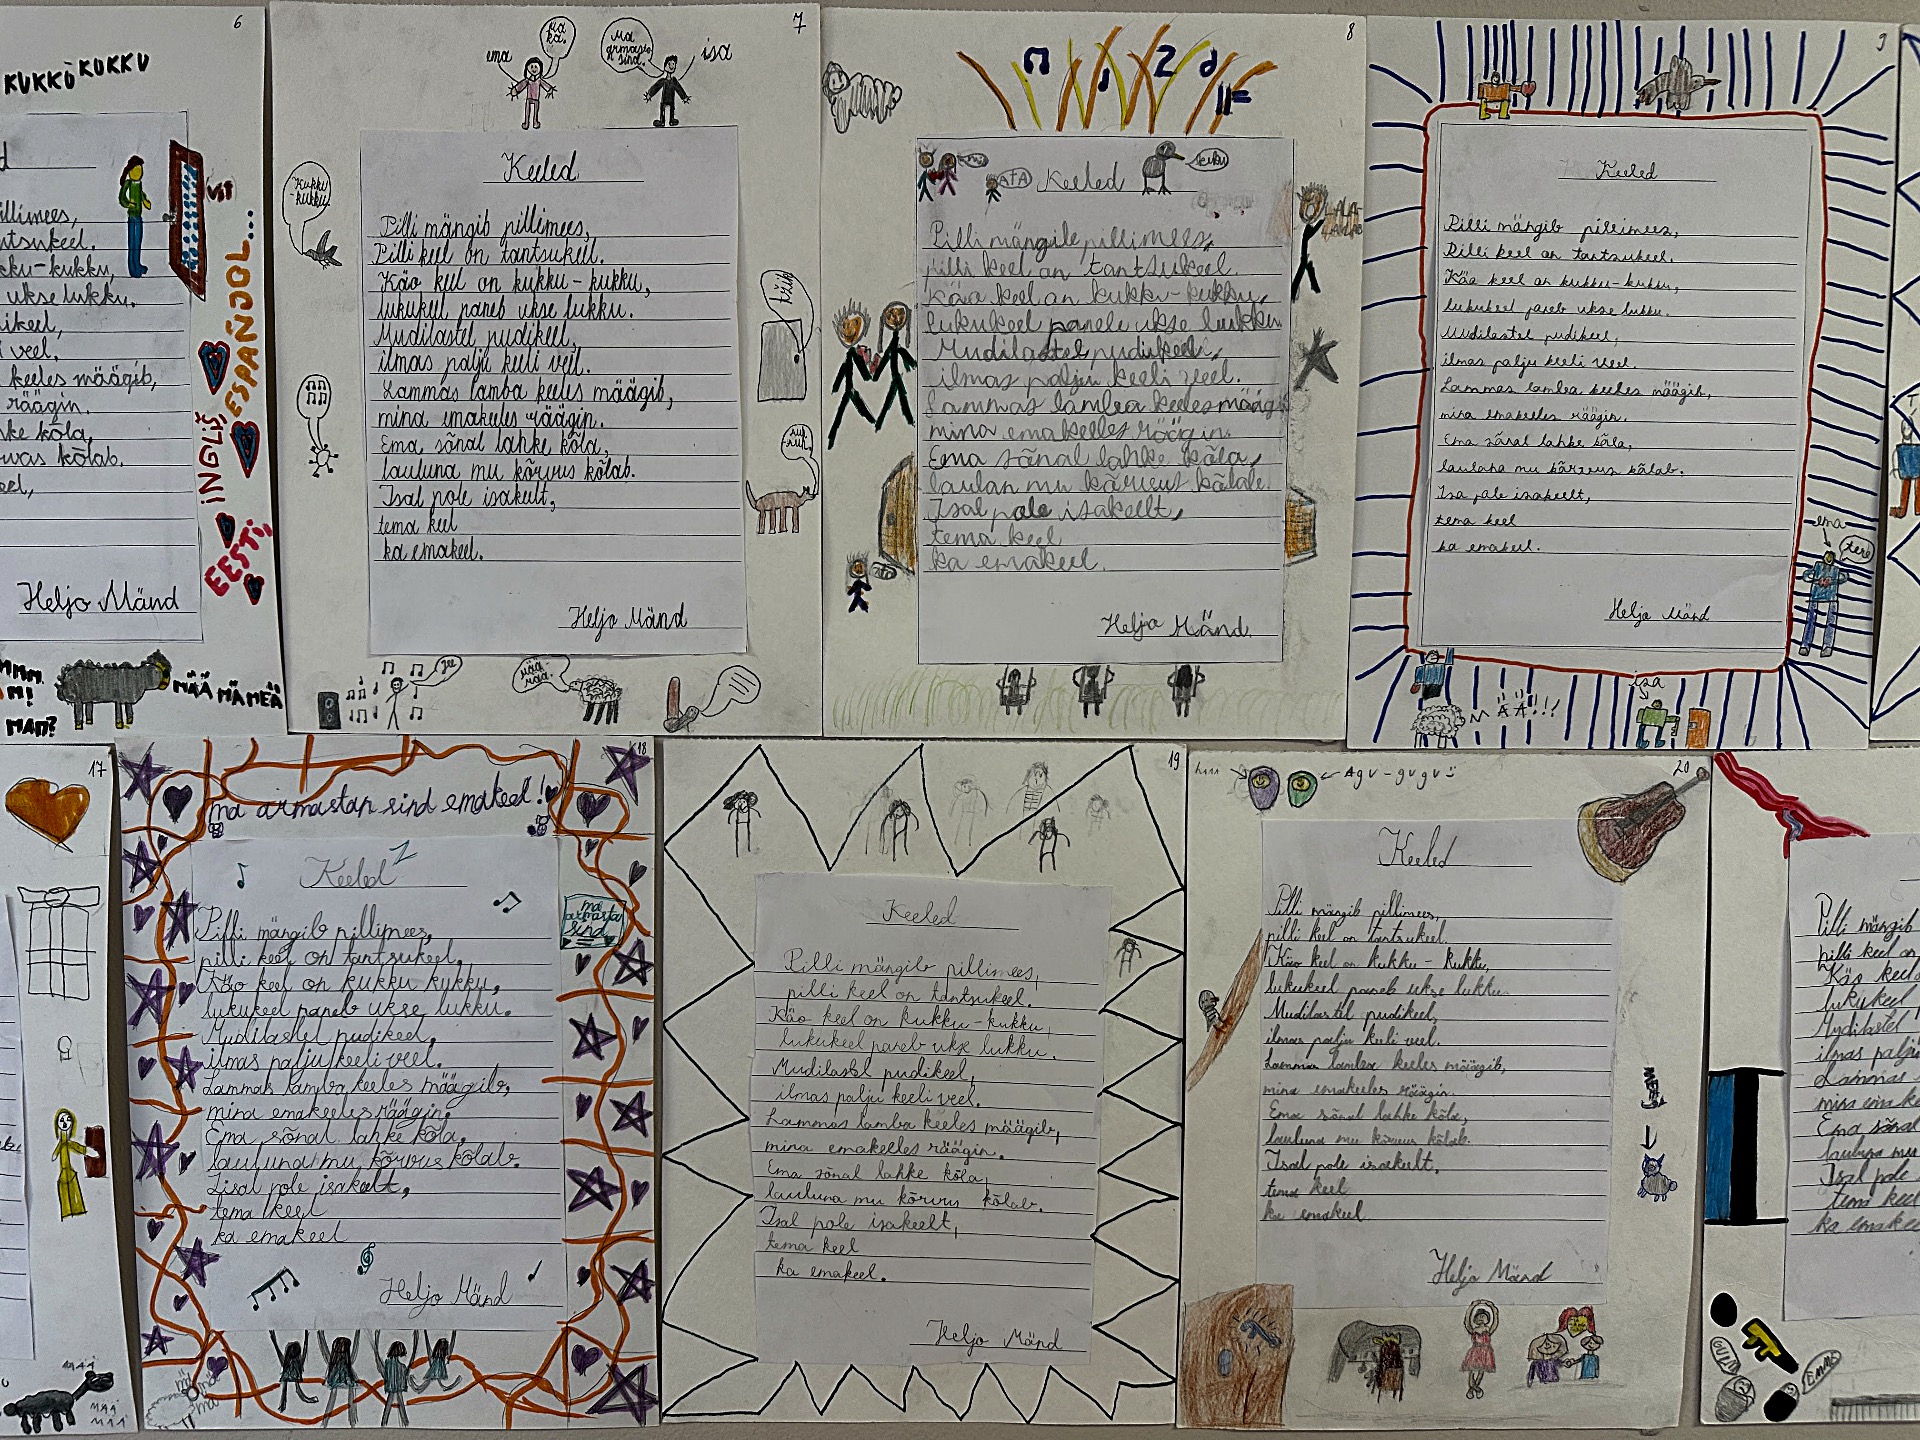 6
KUKKÖ KUKKU
illimees,
ntsukeel.
kku-kukku,
ukse lukku.
nikeel,
veel.
keeles määgib,
räägin.
hke kõla,
rvas kõlab.
eel,
Heljo Mänd
INGLIŠ
ESPAÑJOL...
EESTI
MÄÄ MÄ MEÄ
7
ema
ma ka.
Ma armasta sind.
isa
Kukku-kukku
Keeled
Pilli mängib pillimees,
Pilli keel on tantsukeel.
Käo keel on kukku-kukku,
lukukeel paneb ukse lukku.
Mudilastel pudikeel,
ilmas palju keeli veel.
Lammas lamba keeles määgib,
mina emakeeles räägin.
Ema sõnal lahke kõla,
lauluna mu kõrvus kõlab.
Isal pole isakeelt,
tema keel
ka emakeel.
Heljo Mänd
8
Keeled
Pilli mängib pillimees,
pilli keel on tantsukeel.
Käo keel on kukku-kukku,
lukukeel paneb ukse lukku
Mudilastel pudikeel,
ilmas palju keeli veel.
Lammas lamba keeles määgib
mina emakeeles räägin.
Ema sõnal lahke kõla,
laulan mu kõrvus kõlab.
Isal pole isakeelt,
tema keel
ka emakeel.
Heljo Mänd
Keeled
Pilli mängib pillimees,
Pilli keel on tantsukeel.
Käo keel on kukku-kukku,
lukukeel paneb ukse lukku.
Mudilastel pudikeel,
ilmas palju keeli veel.
Lammas lamba keeles määgib,
mina emakelles räägin.
Ema sõnal lahke kõla,
laulana mu kõrvus kõlab.
Isa pole isakeelt,
tema keel
ka emakeel.
Heljo Mänd
ema
tere
isa
MÄÄ!!!
17
MÄÄ
MÄÄ
MÄÄ
18
ma armastan sind emakeel!
Keeled
ma armasta sind
Pilli mängib pillimees,
pilli keel on tantsukeel.
Käo keel on kukku kukku,
lukukeel paneb ukse lukku.
Mudilastel pudikeel,
ilmas palju keeli veel.
Lammas lamba keeles määgib,
mina emakeeles räägin.
Ema sõnal lahke kõla,
lauluna mu kõrvus kõlab.
Iisal pole isakeelt,
tema keel
ka emakeel
Heljo Mänd
19
Keeled
Pilli mängib pillimees,
pilli keel on tantsukeel.
Käo keel on kukku-kukku,
lukukeel paneb ukse lukku.
Mudilastel pudikeel,
ilmas palju keeli veel.
Lammas lamba keeles määgib,
mina emakelles räägin.
Ema sõnal lahke kõla,
lauluna mu kõrvus kõlab.
Isal pole isakeelt,
tema keel
ka emakeel.
Heljo Mänd
20
Agu-gugu
Keeled
Pilli mängib pillimees,
pilli keel on tantsukeel.
Käo keel on kukku-kukku,
lukukeel paneb ukse lukku.
Mudilastel pudikeel,
ilmas palju keeli veel.
Lammas lamba keeles määgib,
mina emakeeles räägin.
Ema sõnal lahke kõla,
lauluna mu kõrvus kõlab.
Isal pole isakeelt,
tema keel
ka emakeel
Heljo Mänd
Pilli mängib
pilli keel on
Käo keel
lukukeel
Mudilastel
ilmas palju
Lammas
mina emake
Ema sõnal
lauluna mu
Isal pole
tema keel
ka emakeel